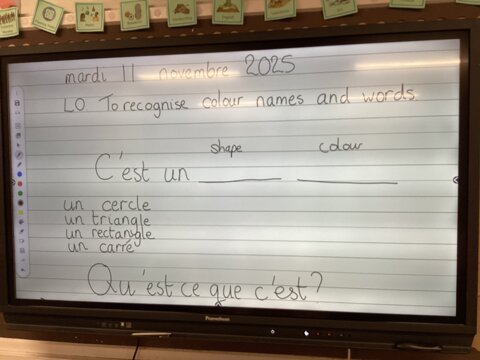 mardi 11 novembre 2025
LO To recognise colour names and words.
shape colour
C'est un ________ ________
un cercle
un triangle
un rectangle
un carré
Qu'est ce que c'est?
Promethean